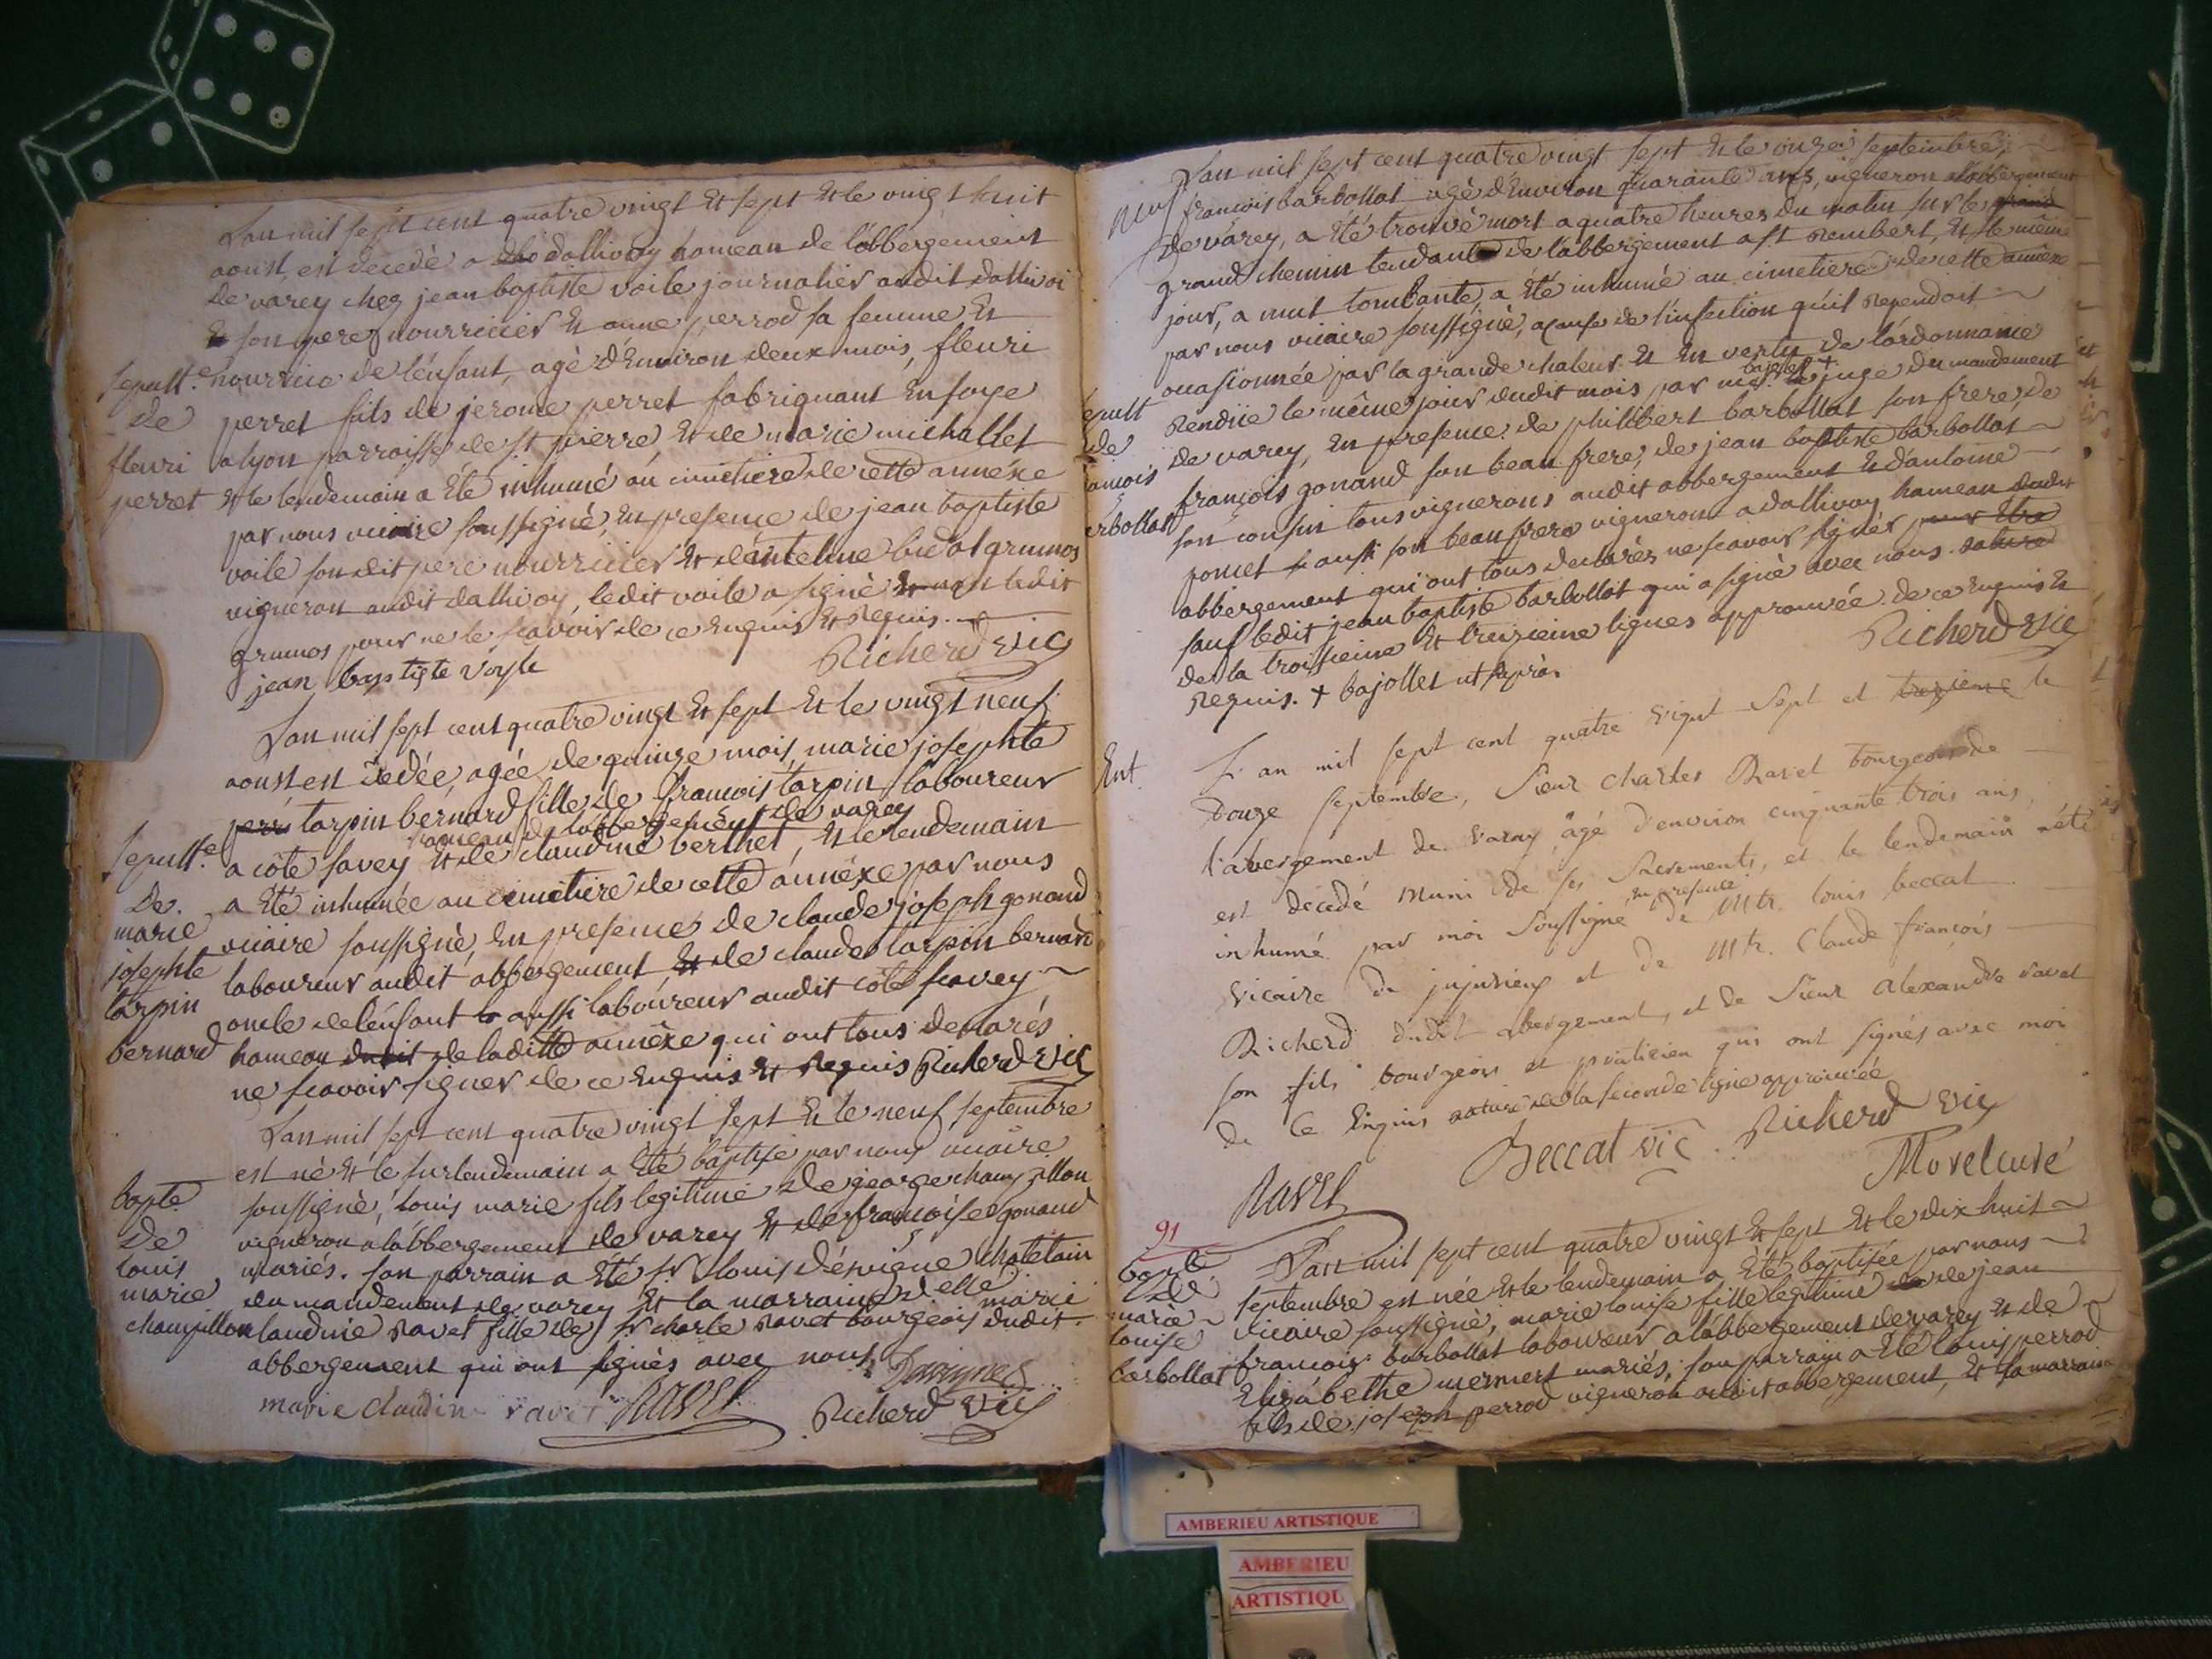 Lan mil sept cent quatre vingt et sept et le vingt huit
aoust, est decedé a dallivoy hameau de l'abbergement
de varey chez jean baptiste voile journalier audit dallivoi
et son pere nourricier et anne perrod sa femme et
nourrice de l'enfant, agé d'environ deux mois, fleuri
perret fils de jerome perret fabriquant en soye
a lyon parroisse de st pierre, et de marie michallet
et le lendemain a été inhumé au cimetiere de cette annéxe
par nous vicaire soussigné, en presence de jean baptiste
voile son dit pere nourricier et d'antelme bidal grumos
vigneron audit dallivoy, ledit voile a signé et non ledit
grumos pour ne le scavoir de ce enquis et requis.
jean baptiste voyle
Richerd vic
sepult.e
de
fleuri
perret
Lan mil sept cent quatre vingt et sept et le vingt neuf
aoust est decedée, agée de quinze mois, marie josephte
perr tarpin bernard fille de francois tarpin laboureur
hameau de l'abbergement de varey
a côte savey et de claudine berthet, et le lendemain
a été inhumée au cimetiere de cette annéxe par nous
vicaire soussigné, en presence de claude joseph gonand
laboureur audit abbergement et de claude tarpin bernard
oncle de l'enfant aussi laboureur audit côte savey
hameau dudit de laditte annéxe qui ont tous declarés
ne scavoir signer de ce enquis et requis Richerd vic
sepult.e
de.
marie
josephte
tarpin
bernard
Lan mil sept cent quatre vingt sept et le neuf septembre
est né et le surlendemain a été baptisé par nous vicaire
soussigné, louis marie fils legitime de george champillon
vigneron a l'abbergement de varey et de francoise gonand
mariés. son parrain a été sr louis chatelain
du mandement de varey et la marraine delle marie
claudine ravet fille de sr charle ravet bourgeois dudit
abbergement qui ont signés avec nous.
marie claudine ravet RAVET Richerd vic
bapte
de
louis
marie
champillon
Lan mil sept cent quatre vingt sept et le onze septembre,
francois barbollat agé d'environ quarante ans, vigneron a l'abbergement
de varey, a été trouvé mort a quatre heures du matin sur le grand
grand chemin tendant de l'abbergement a st rembert, et le même
jour, a nuit tombante, a été inhumé au cimetiere de cette annéxe
par nous vicaire soussigné, a cause de l'infection qu'il rependoit
occasionnée par la grande chaleur et en vertu de l'ordonnance
bajollet +
rendüe le même jour dudit mois par mr. le juge du mandement
de varey, en presence de philibert barbollat son frere, de
françois gonand son beau frere, de jean baptiste barbollat
son cousin tous vignerons audit abbergement et d'antoine
poncet aussi son beau frere vigneron a dallivoy hameau dudit
abbergement qui ont tous declarés ne scavoir signer pour être
sauf ledit jean baptiste barbollat qui a signé avec nous. rature
de la troisieme et treizieme lignes approuvée de ce enquis et
requis. + bajollet
Richerd vic
sepult
de
ancois
arbollat
L'an mil sept cent quatre vingt sept et treizieme le
Douze septembre, sieur charles Ravet bourgeois de
l'abergement de varay, âgé d'environ cinquante trois ans,
est décédé muni de ses sacrements, et le lendemain a été
en presence
inhumé par moi soussigné de Mtr. louis beccat
vicaire de jujurieux et de Mtr. Claude françois
Richerd dudit abergement, et de sieur alexandre ravet
son fils bourgeois et praticien qui ont signés avec moi
de ce enquis rature de la seconde ligne approuvée
Beccat vic. Richerd vic
RAVET
Morel curé
Ent.
91
Lan mil sept cent quatre vingt et sept et le dix huit
septembre est née et le lendemain a été baptisée par nous
vicaire soussigné, marie louise fille legitime de jean
francois barbollat laboureur a l'abbergement de varey et de
Elizabethe mermet mariés; son parrain a été louis perrod
fils de joseph perrod vigneron audit abbergement, et la marraine
bapte
de
marie
louise
barbollat
AMBERIEU ARTISTIQUE
AMBERIEU
ARTISTIQU